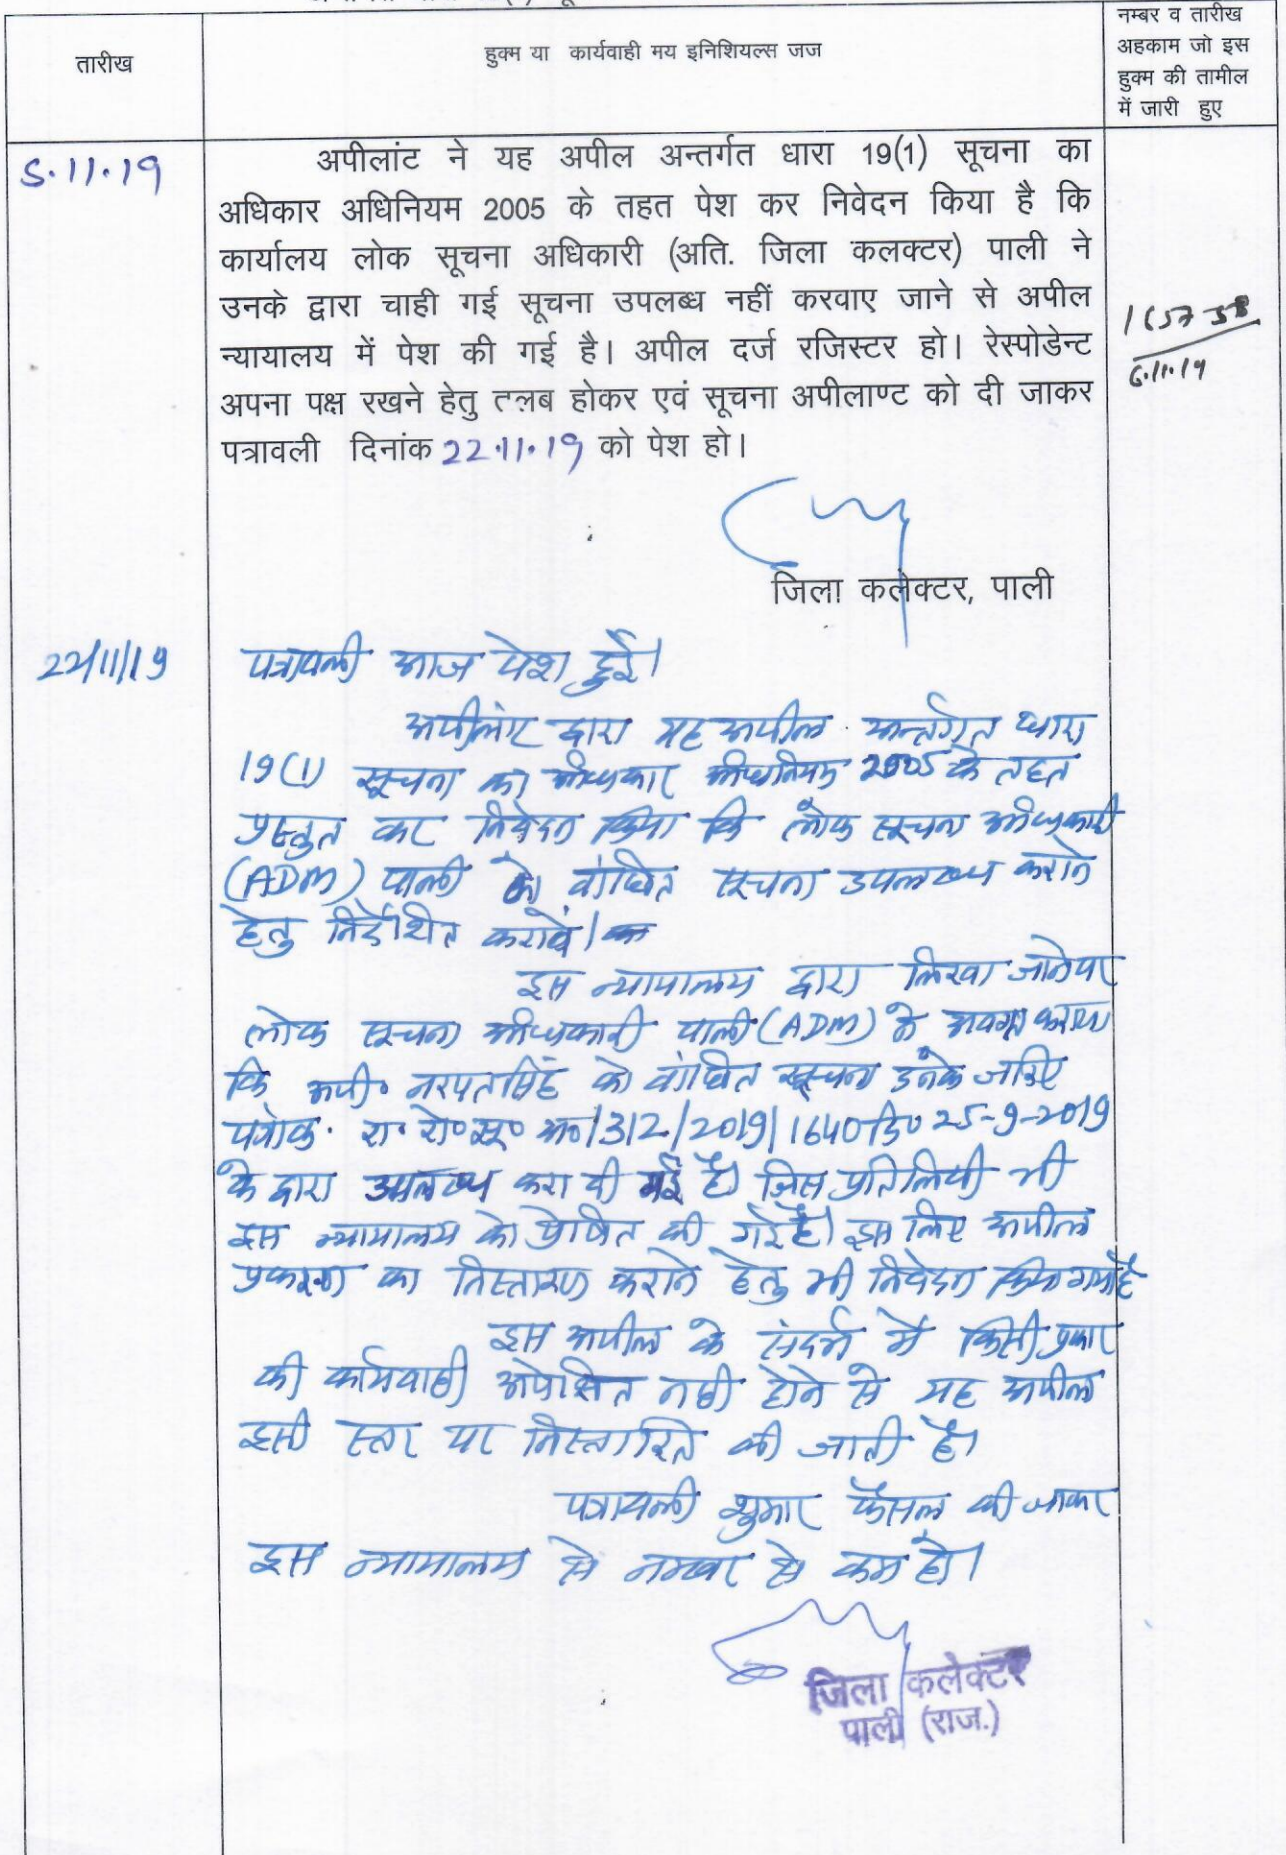 तारीख
हुक्म या कार्यवाही मय इनिशियल्स जज
नम्बर व तारीख
अहकाम जो इस
हुक्म की तामील
में जारी हुए
5.11.19
अपीलांट ने यह अपील अन्तर्गत धारा 19(1) सूचना का
अधिकार अधिनियम 2005 के तहत पेश कर निवेदन किया है कि
कार्यालय लोक सूचना अधिकारी (अति. जिला कलक्टर) पाली ने
उनके द्वारा चाही गई सूचना उपलब्ध नहीं करवाए जाने से अपील
न्यायालय में पेश की गई है। अपील दर्ज रजिस्टर हो। रेस्पोडेन्ट
अपना पक्ष रखने हेतु तलब होकर एवं सूचना अपीलाण्ट को दी जाकर
पत्रावली दिनांक 22.11.19 को पेश हो।
6.11.19
जिला कलेक्टर, पाली
22/11/19
पत्रावली आज पेश हुई।
अपीलांट द्वारा यह अपील अन्तर्गत धारा
19(1) सूचना का अधिकार अधिनियम 2005 के तहत
प्रस्तुत कर निवेदन किया कि लोक सूचना अधिकारी
(ADM) पाली को वांछित सूचना उपलब्ध कराने
हेतु निर्देशित करावें।
इस न्यायालय द्वारा लिखा जाने पर
लोक सूचना अधिकारी पाली (ADM) ने अवगत कराया
कि अपी. नरपतसिंह को वांछित सूचना इनके जरिए
पत्रांक. रा.
1312/2019/1640 दि० 25-9-2019
के द्वारा उपलब्ध करा दी गई है। जिस प्रतिलिपी भी
इस न्यायालय को प्रेषित की गई है। इस लिए अपील
प्रकरण का निस्तारण कराने हेतु भी निवेदन किया गया है
इस अपील के संदर्भ में किसी प्रकार
की कार्यवाही अपेक्षित नही होने से यह अपील
इसी स्तर पर निस्तारित की जाती है।
पत्रावली शुमार फैसल की जाकर
इस न्यायालय से नम्बर से कम हो।
जिला कलेक्टर
पाली (राज.)